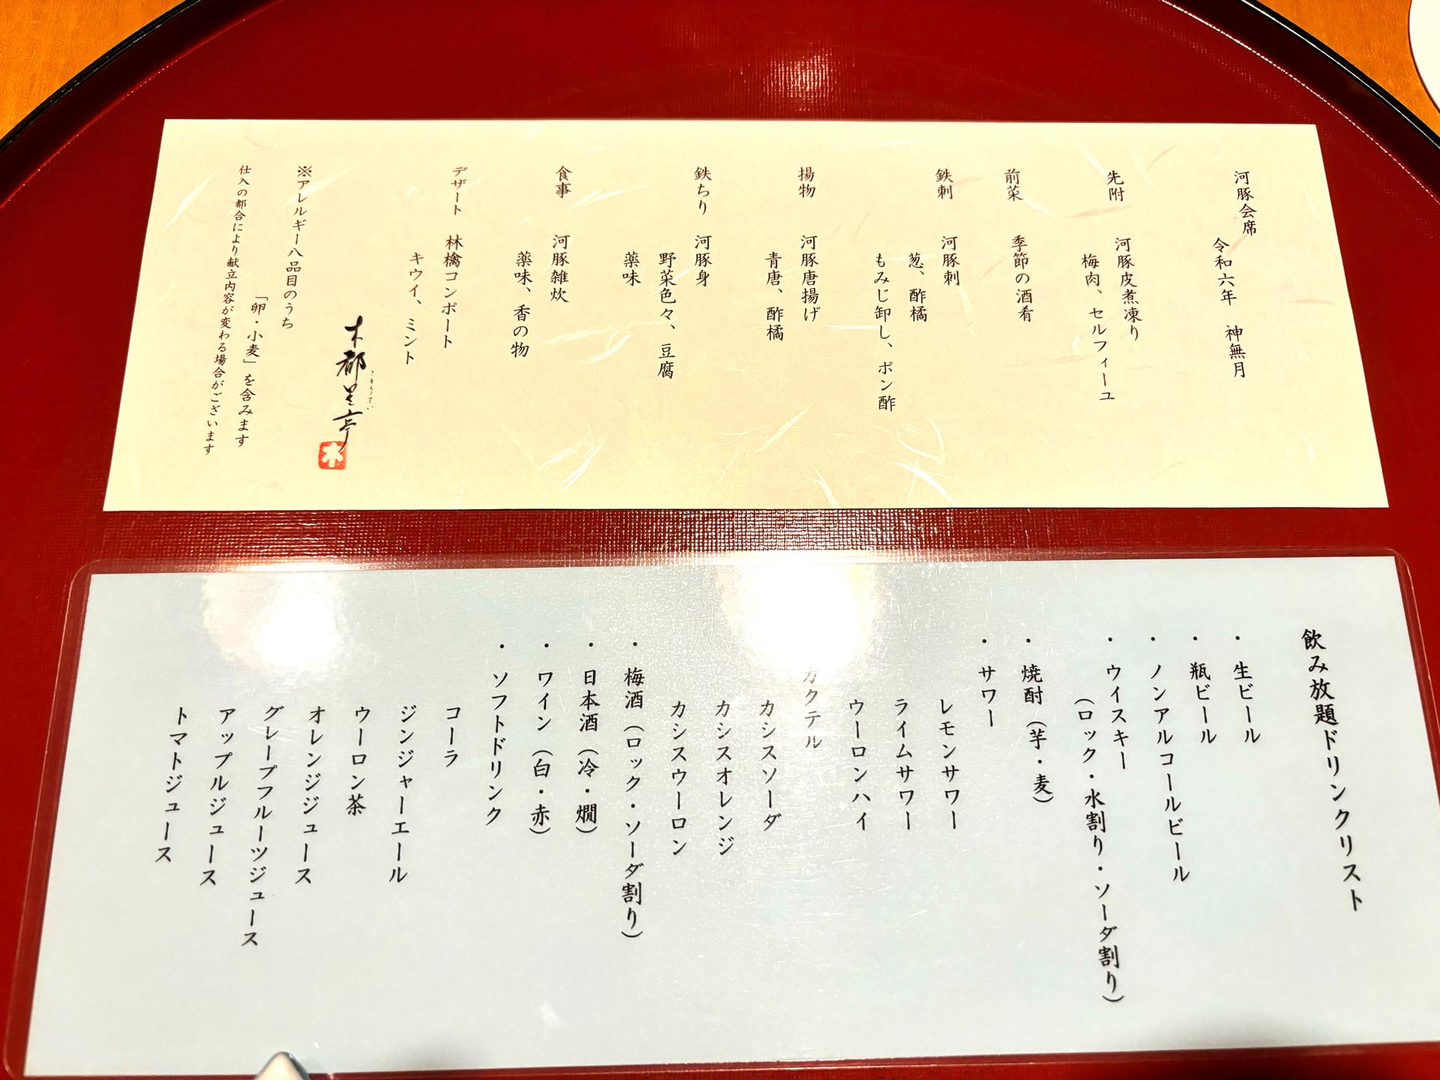 河豚会席
令和六年　神無月
先附　河豚皮煮凍り
梅肉、セルフィーユ
前菜　季節の酒肴
鉄刺　河豚刺
葱、酢橘
もみじ卸し、ポン酢
揚物　河豚唐揚げ
青唐、酢橘
鉄ちり　河豚身
野菜色々、豆腐
薬味
食事　河豚雑炊
薬味、香の物
デザート　林檎コンポート
キウイ、ミント
木都里亭
ことりてい
木
※アレルギー八品目のうち
「卵・小麦」を含みます
仕入の都合により献立内容が変わる場合がございます
飲み放題ドリンクリスト
・生ビール
・瓶ビール
・ノンアルコールビール
・ウイスキー
（ロック・水割り・ソーダ割り）
・焼酎（芋・麦）
・サワー
レモンサワー
ライムサワー
ウーロンハイ
カクテル
カシスソーダ
カシスオレンジ
カシスウーロン
・梅酒（ロック・ソーダ割り）
・日本酒（冷・燗）
・ワイン（白・赤）
・ソフトドリンク
コーラ
ジンジャーエール
ウーロン茶
オレンジジュース
グレープフルーツジュース
アップルジュース
トマトジュース